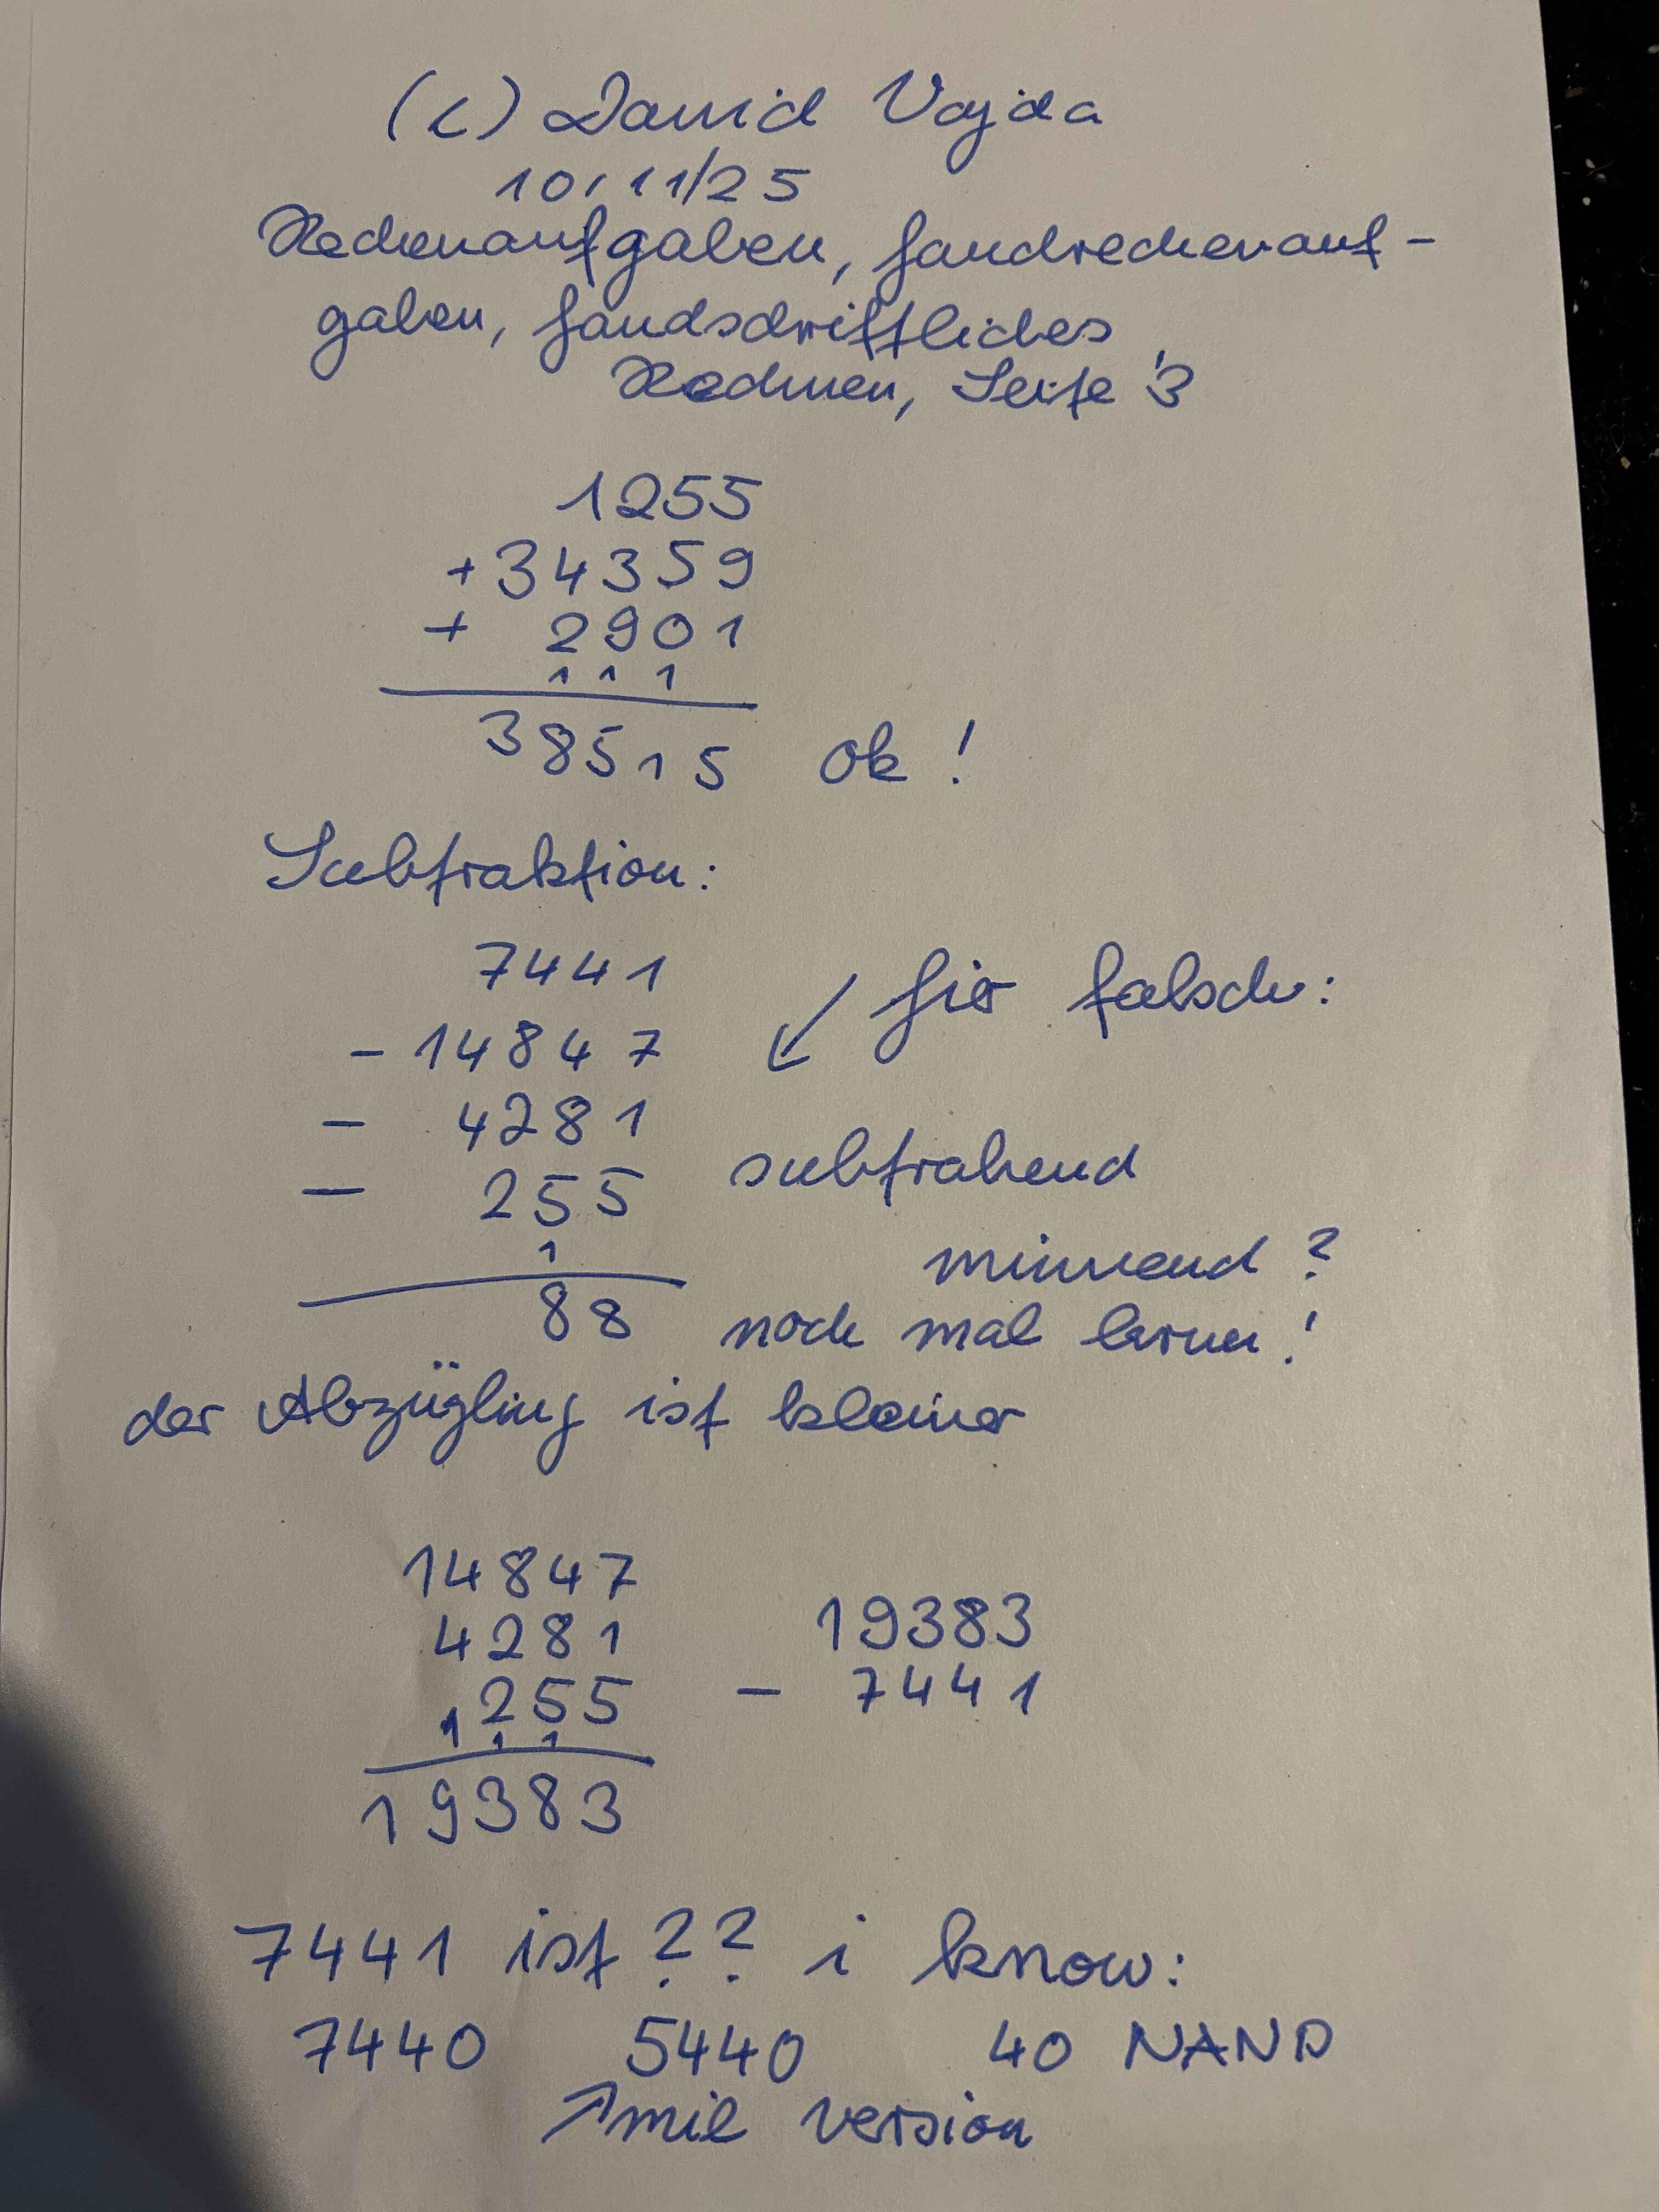 (c) David Vajda
10/11/25
Rechenaufgaben, handrechenauf-
gaben, handschriftliches
Rechnen, Seite 3
1255
+34359
+ 2901
1 1 1
38515 ok!
Subtraktion:
7441
-14847 hier falsch:
- 4281
- 255 subtrahend
1 minuend?
88 noch mal lernen!
der Abzügling ist kleiner
14847
4281
255
1 1 1
19383
19383
- 7441
7441 ist ?? i know:
7440 5440 40 NAND
mil version